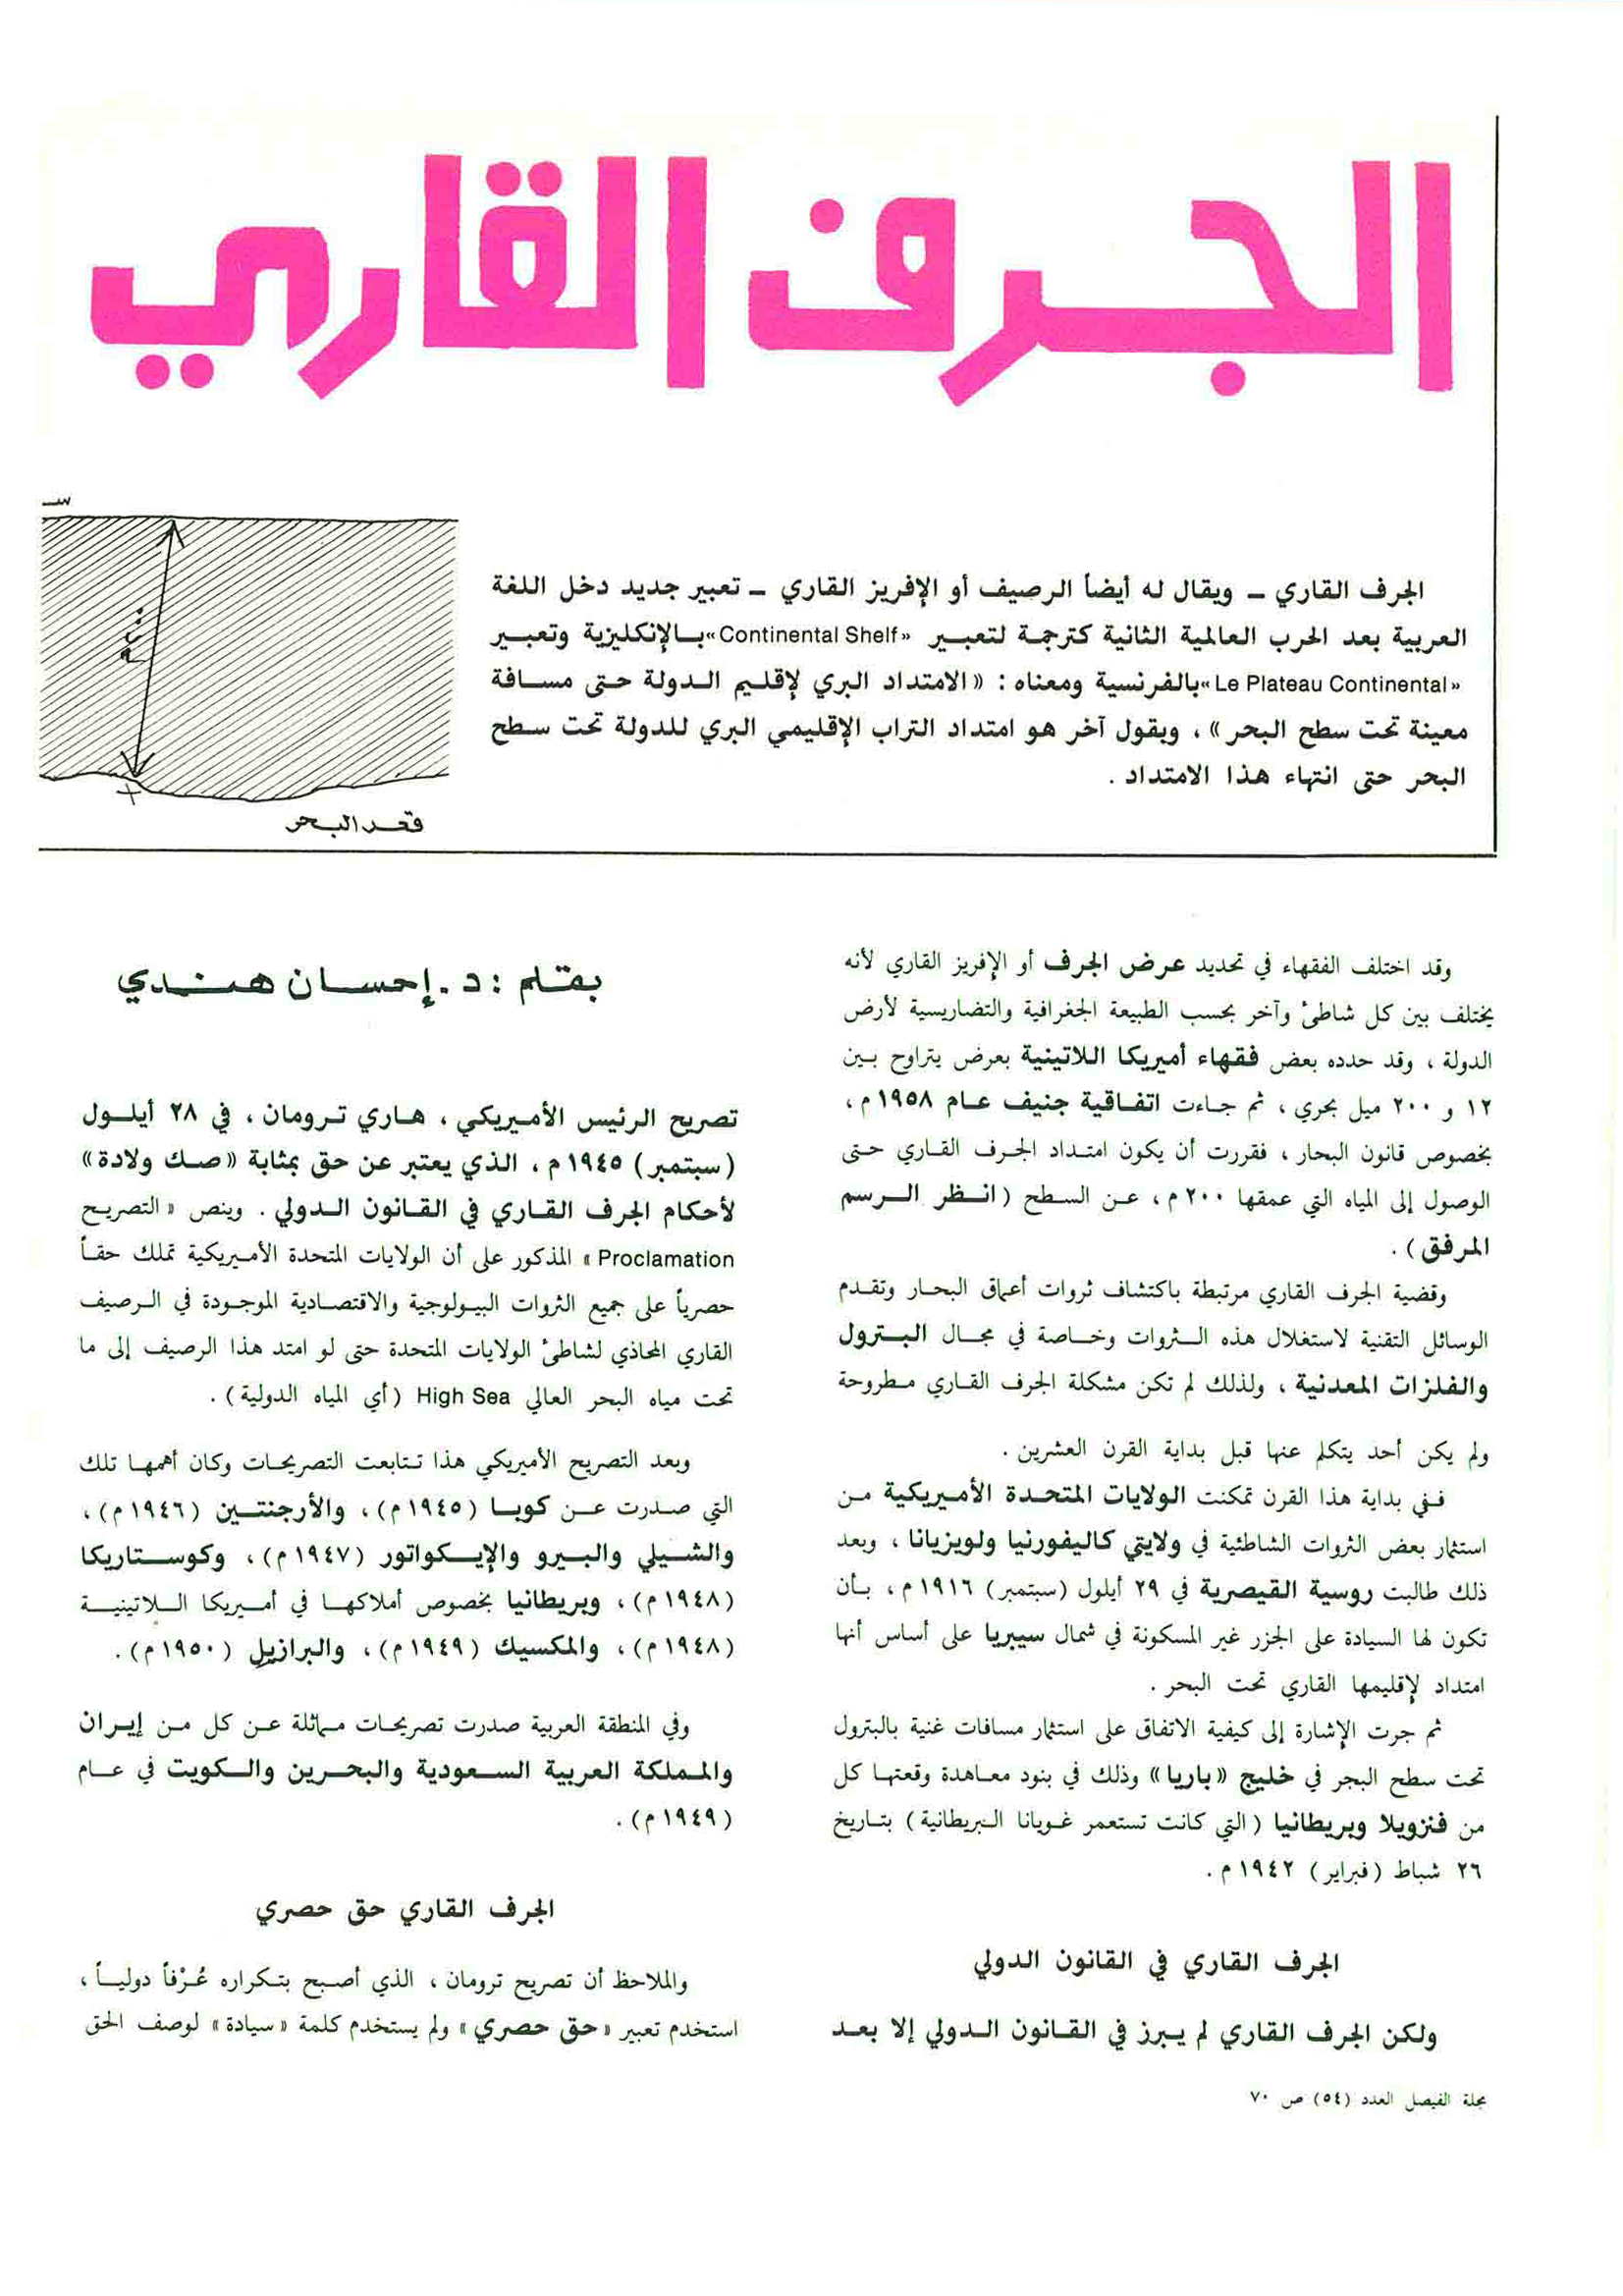 الجرف القاري
سـ
٢٠٠م
قعر البحر
الجرف القاري – ويقال له أيضاً الرصيف أو الإفريز القاري – تعبير جديد دخل اللغة
العربية بعد الحرب العالمية الثانية كترجمة لتعبير «Continental Shelf» بالإنكليزية وتعبير
«Le Plateau Continental» بالفرنسية ومعناه : «الامتداد البري لإقليم الدولة حتى مسافة
معينة تحت سطح البحر» ، وبقول آخر هو امتداد التراب الإقليمي البري للدولة تحت سطح
البحر حتى انتهاء هذا الامتداد .
وقد اختلف الفقهاء في تحديد عرض الجرف أو الإفريز القاري لأنه
يختلف بين كل شاطئ وآخر بحسب الطبيعة الجغرافية والتضاريسية لأرض
الدولة ، وقد حدده بعض فقهاء أميريكا اللاتينية بعرض يتراوح بين
١٢ و ٢٠٠ ميل بحري ، ثم جاءت اتفاقية جنيف عام ١٩٥٨ م ،
بخصوص قانون البحار ، فقررت أن يكون امتداد الجرف القاري حتى
الوصول إلى المياه التي عمقها ٢٠٠ م ، عن السطح (انظر الرسم
المرفق) .
وقضية الجرف القاري مرتبطة باكتشاف ثروات أعماق البحار وتقدم
الوسائل التقنية لاستغلال هذه الثروات وخاصة في مجال البترول
والفلزات المعدنية ، ولذلك لم تكن مشكلة الجرف القاري مطروحة
ولم يكن أحد يتكلم عنها قبل بداية القرن العشرين .
ففي بداية هذا القرن تمكنت الولايات المتحدة الأميريكية من
استثمار بعض الثروات الشاطئية في ولايتي كاليفورنيا ولويزيانا ، وبعد
ذلك طالبت روسية القيصرية في ٢٩ أيلول (سبتمبر) ١٩١٦ م ، بأن
تكون لها السيادة على الجزر غير المسكونة في شمال سيبريا على أساس أنها
امتداد لإقليمها القاري تحت البحر .
ثم جرت الإشارة إلى كيفية الاتفاق على استثمار مسافات غنية بالبترول
تحت سطح البجر في خليج «باريا» وذلك في بنود معاهدة وقعتها كل
من فنزويلا وبريطانيا (التي كانت تستعمر غويانا البريطانية) بتاريخ
٢٦ شباط (فبراير) ١٩٤٢ م .
الجرف القاري في القانون الدولي
ولكن الجرف القاري لم يبرز في القانون الدولي إلا بعد
بقلم : د . إحسان هندي
تصريح الرئيس الأميريكي ، هاري ترومان ، في ٢٨ أيلول
(سبتمبر) ١٩٤٥ م ، الذي يعتبر عن حق بمثابة «صك ولادة»
لأحكام الجرف القاري في القانون الدولي . وينص «التصريح
Proclamation» المذكور على أن الولايات المتحدة الأميريكية تملك حقاً
حصرياً على جميع الثروات البيولوجية والاقتصادية الموجودة في الرصيف
القاري المحاذي لشاطئ الولايات المتحدة حتى لو امتد هذا الرصيف إلى ما
تحت مياه البحر العالي High Sea (أي المياه الدولية) .
وبعد التصريح الأميريكي هذا تتابعت التصريحات وكان أهمها تلك
التي صدرت عن كوبا (١٩٤٥ م) ، والأرجنتين (١٩٤٦ م) ،
والشيلي والبيرو والإيكواتور (١٩٤٧ م) ، وكوستاريكا
(١٩٤٨ م) ، وبريطانيا بخصوص أملاكها في أميريكا اللاتينية
(١٩٤٨ م) ، والمكسيك (١٩٤٩ م) ، والبرازيل (١٩٥٠ م) .
وفي المنطقة العربية صدرت تصريحات مماثلة عن كل من إيران
والمملكة العربية السعودية والبحرين والكويت في عام
(١٩٤٩ م) .
الجرف القاري حق حصري
والملاحظ أن تصريح ترومان ، الذي أصبح بتكراره عُرْفاً دولياً ،
استخدم تعبير «حق حصري» ولم يستخدم كلمة «سيادة» لوصف الحق
مجلة الفيصل العدد (٥٤) ص ٧٠